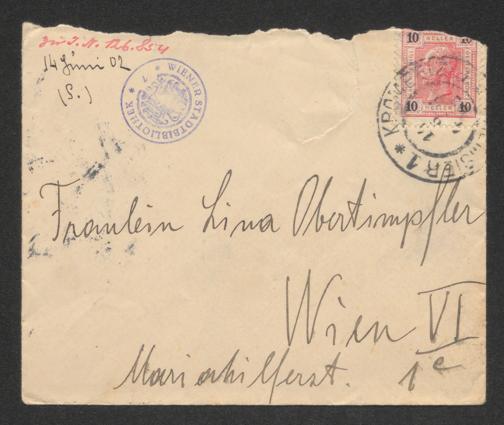 zu I. N. 126.854
14 Juni 02
(S.)
* WIENER STADTBIBLIOTHEK *
10 10
HELLER HELLER
10 10
1 *
Fraulein Lina Obertimpfler
Wien VI
Mariahilferst. 1c